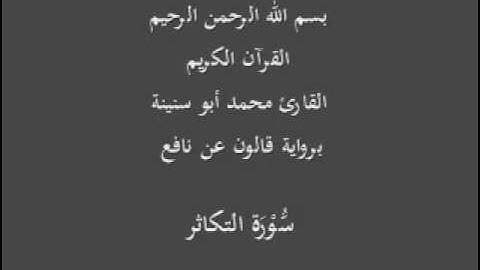 بسم الله الرحمن الرحيم
القرآن الكريم
القارئ محمد أبو سنينة
برواية قالون عن نافع
سُّوْرَة التكاثر